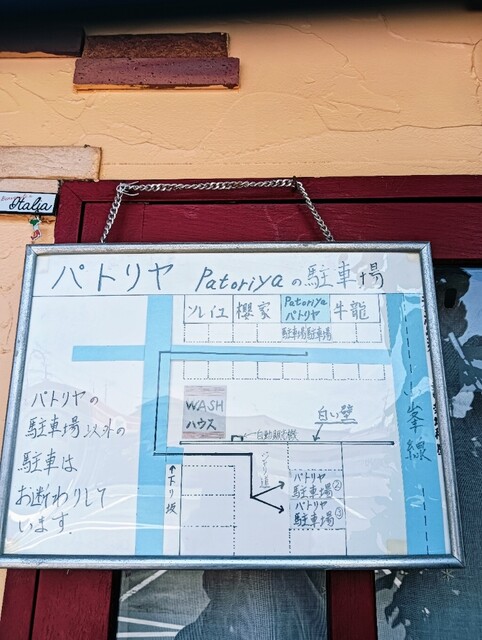 Italia
パトリヤ Patoriyaの駐車場
ソレイユ
櫻家
Patoriya
パトリヤ
牛龍
駐車場
駐車場
WASH
ハウス
自動販売機
白い壁
峯線
↑下り坂
パトリヤの
駐車場以外の
駐車は
お断わりして
います.
パトリヤ
駐車場②
パトリヤ
駐車場③